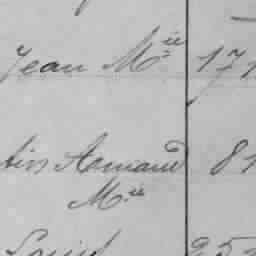 Jean M.ie 171
tin Armand 81
M.ie
Louis 252